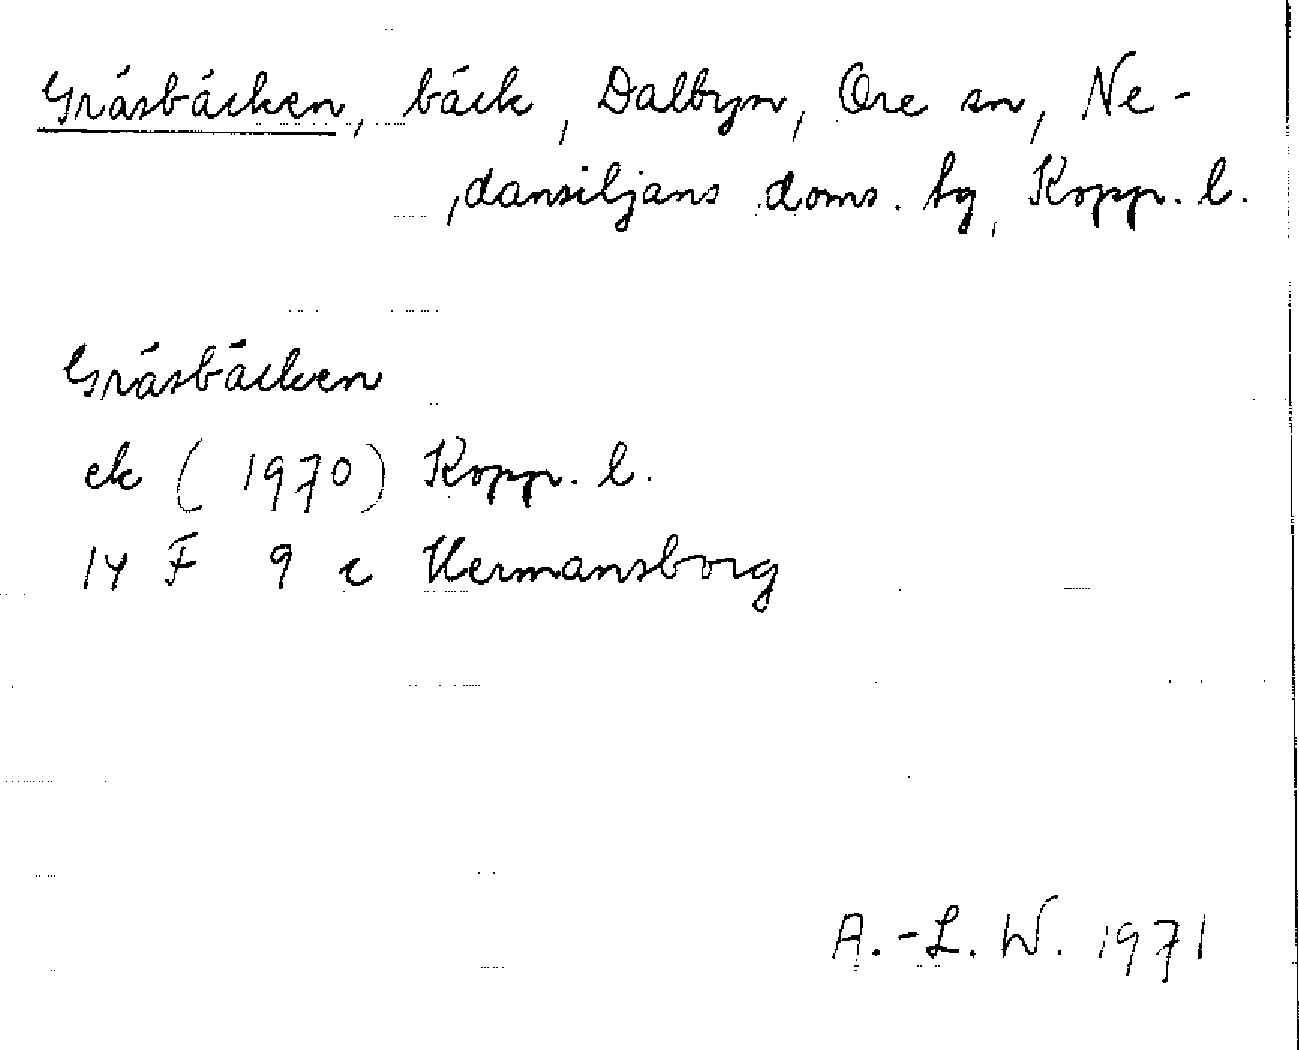 Gräsbäcken, bäck, Dalbyn, Ore sn, Ne-
dansiljans doms. tg, Kopp. l.
Gräsbäcken
ek (1970) Kopp. l.
14 F 9 c Hermansborg
A.-L. W. 1971